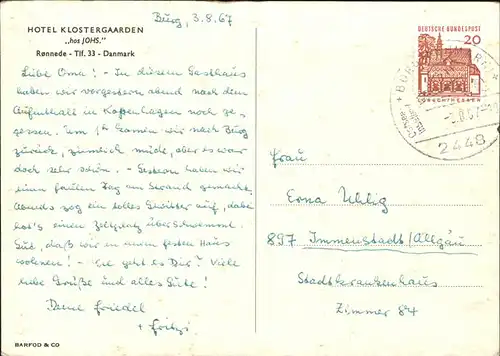 Burg, 3.8.67
HOTEL KLOSTERGAARDEN
„hos JOHS."
Rønnede - Tlf. 33 - Danmark
Liebe Oma! - In diesem Gasthaus
haben wir vorgestern abend nach dem
Aufenthalt in Kopenhagen noch ge-
gessen. Um 1h kamen wir nach Burg
zurück, ziemlich müde, aber es war
doch sehr schön. - Gestern haben wir
einen faulen Tag am Strand gemacht.
Abends zog ein tolles Gewitter auf, dabei
hat's einen Zeltplatz überschwemmt.
Gut, daß wir in einem festen Haus
wohnen! - Wie geht es Dir? Viele
liebe Grüße und alles Gute!
Deine Friedel
+ Fritzi
BARFOD & CO
DEUTSCHE BUNDESPOST
20
LORSCH/HESSEN
2448
Frau
Erna Uhlig
897 Immenstadt/Allgäu
Stadtkrankenhaus
Zimmer 84